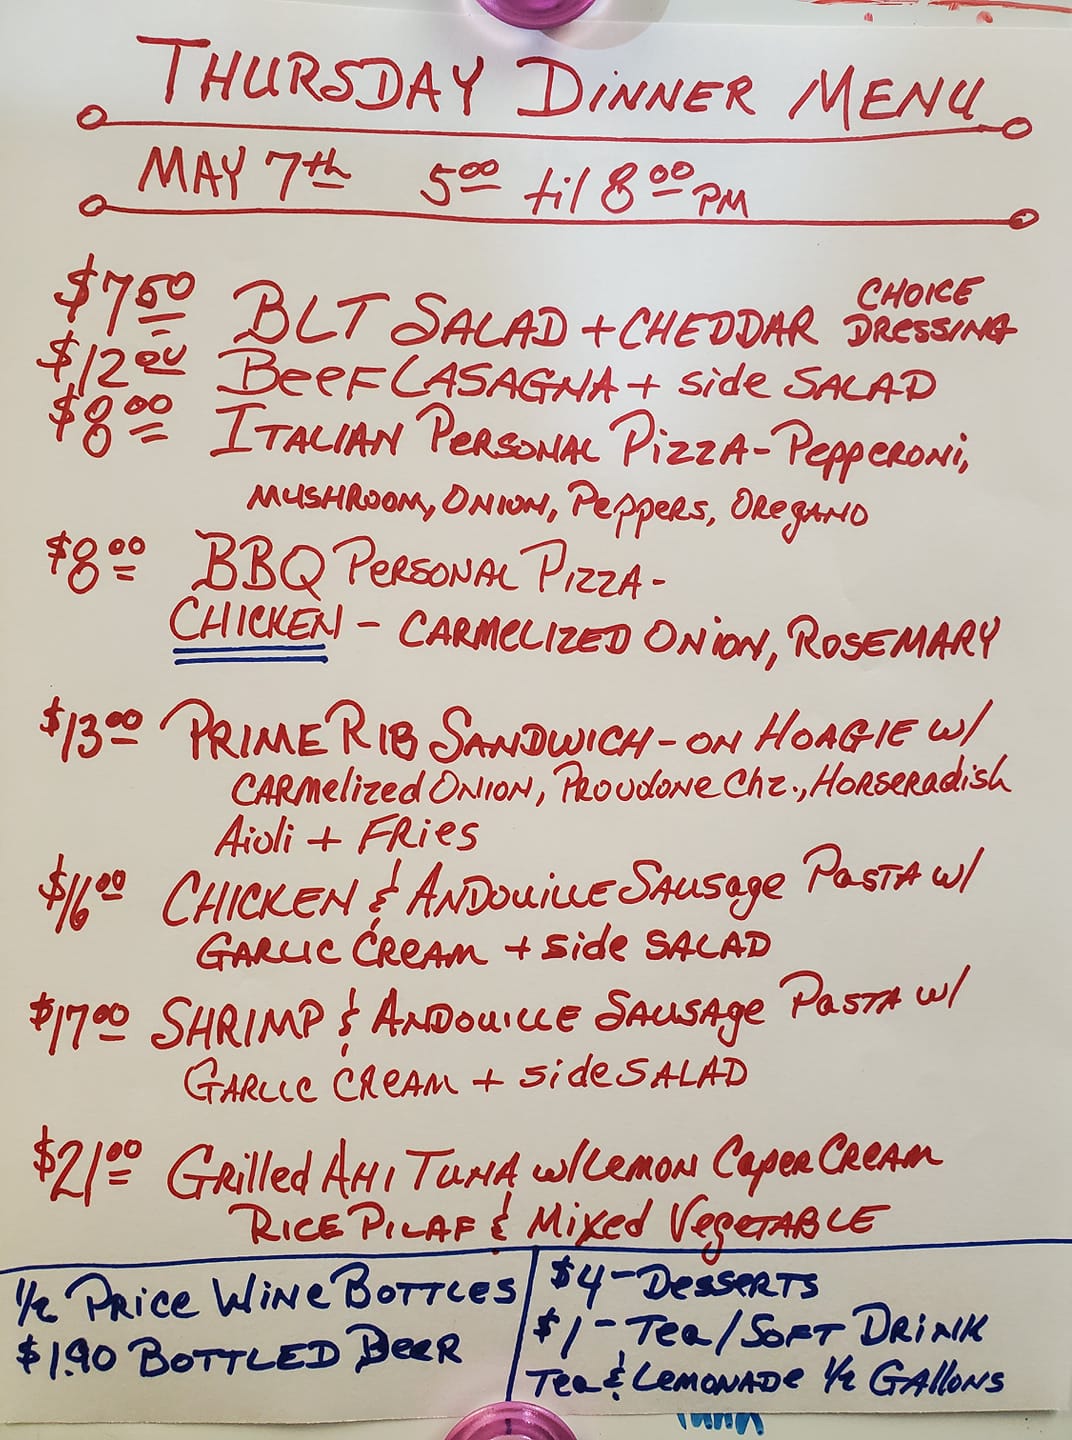 THURSDAY DINNER MENU
MAY 7th 5:00 til 8:00 PM
$7.50 BLT SALAD + CHEDDAR CHOICE DRESSING
$12.00 BEEF LASAGNA + side SALAD
$8.00 ITALIAN PERSONAL PIZZA - PEPPERONI,
MUSHROOM, ONION, PEPPERS, OREGANO
$8.00 BBQ PERSONAL PIZZA -
CHICKEN - CARMELIZED ONION, ROSEMARY
$13.00 PRIME RIB SANDWICH - ON HOAGIE W/
CARMELIZED ONION, PROUDONE Chz., HORSERADISH
AIOLI + FRIES
$16.00 CHICKEN & ANDOUILLE SAUSAGE PASTA W/
GARLIC CREAM + side SALAD
$17.00 SHRIMP & ANDOUILLE SAUSAGE PASTA W/
GARLIC CREAM + side SALAD
$21.00 GRILLED AHI TUNA W/ LEMON CAPER CREAM
RICE PILAF & MIXED VEGETABLE
1/2 PRICE WINE BOTTLES
$1.90 BOTTLED BEER
$4 - DESSERTS
$1 - TEA / SOFT DRINK
TEA & LEMONADE 1/2 GALLONS